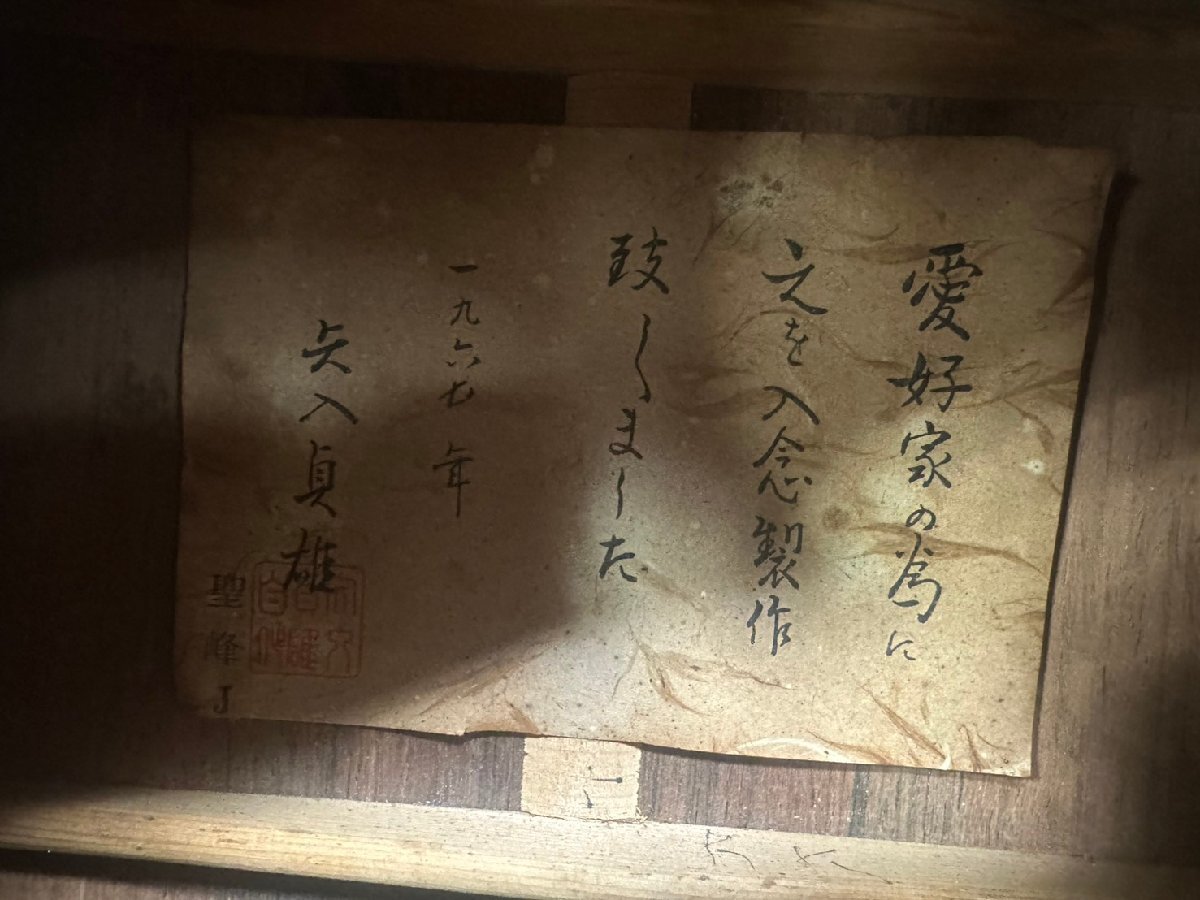 愛好家の為に
之を入念製作
致しました
一九六七年
矢入貞雄
聖峰J